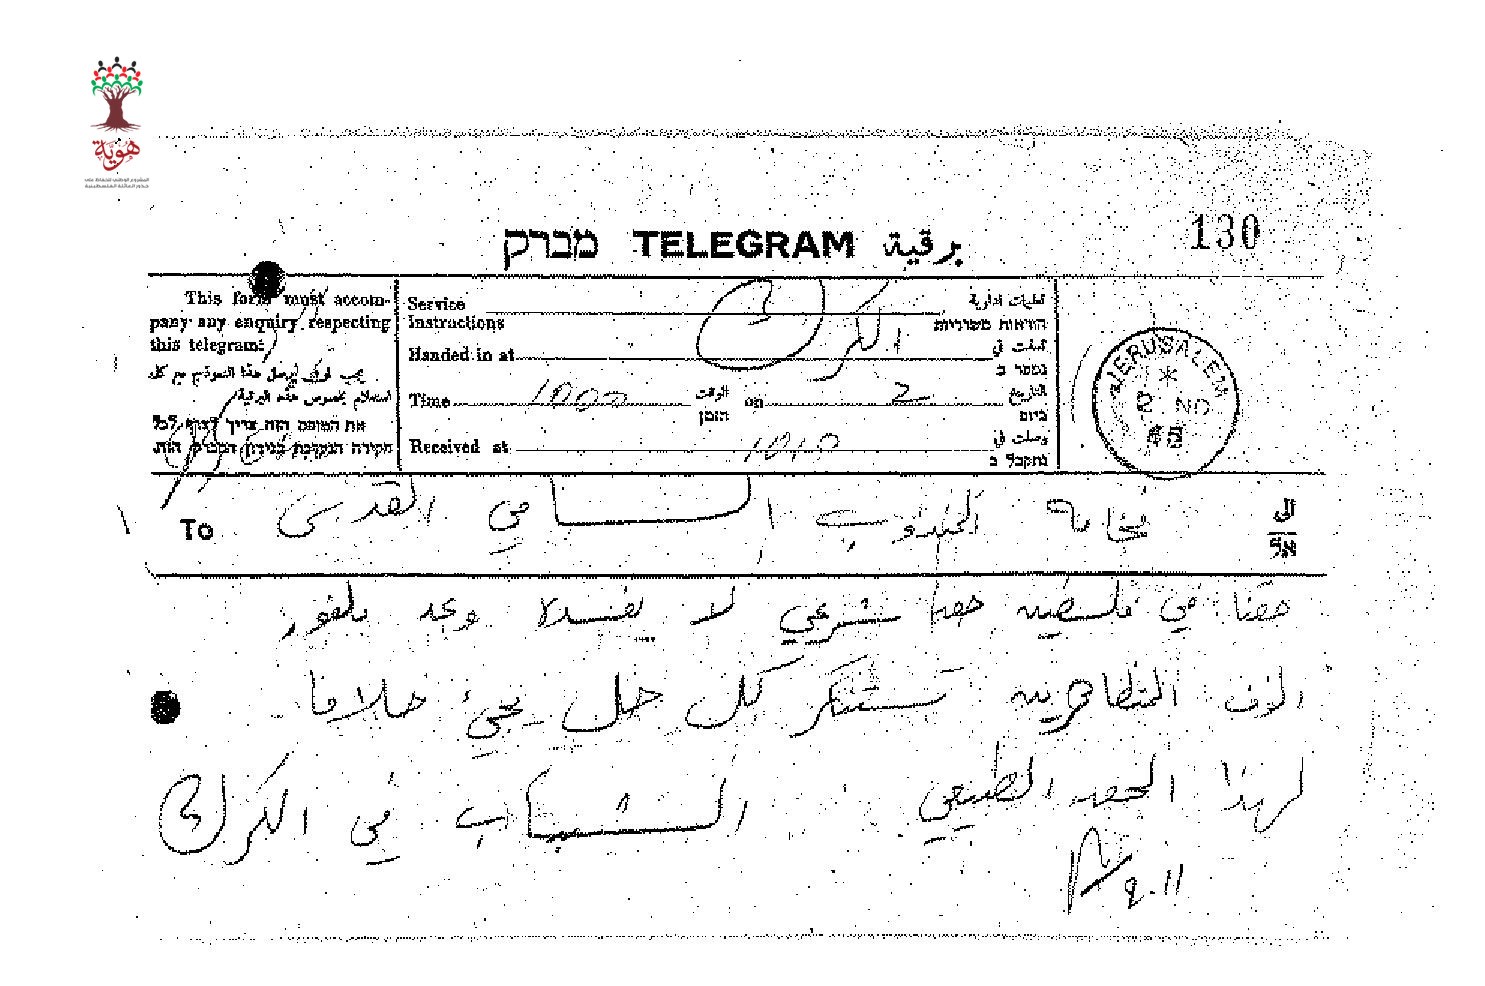 هوية
المشروع الوطني للحفاظ على
جذور العائلة الفلسطينية
130
מברק TELEGRAM برقية
This form must accom-
pany any enquiry respecting
this telegram.
يجب ان يرسل هذا النموذج مع كل
استعلام بخصوص هذه البرقية
את הטופס הזה צריך לצרף לכל
חקירה הנערכת בנידון המברק הזה.
Service
Instructions
تعليمات ادارية
הוראות משרדיות
Handed in at الكرك سلمت في
נמסר ב
Time 1000 الوقت on 2 التاريخ
הזמן ביום
Received at 1010 وصلت في
נתקבל ב
JERUSALEM
2 NO
To فخامة المندوب السامي القدس الى
אל
حقنا في فلسطين حق شرعي لا يفسده وعد بلفور
الاف المتظاهرين تستنكر كل حل يجيء خلافا
لهذا الحق الطبيعي الشباب في الكرك